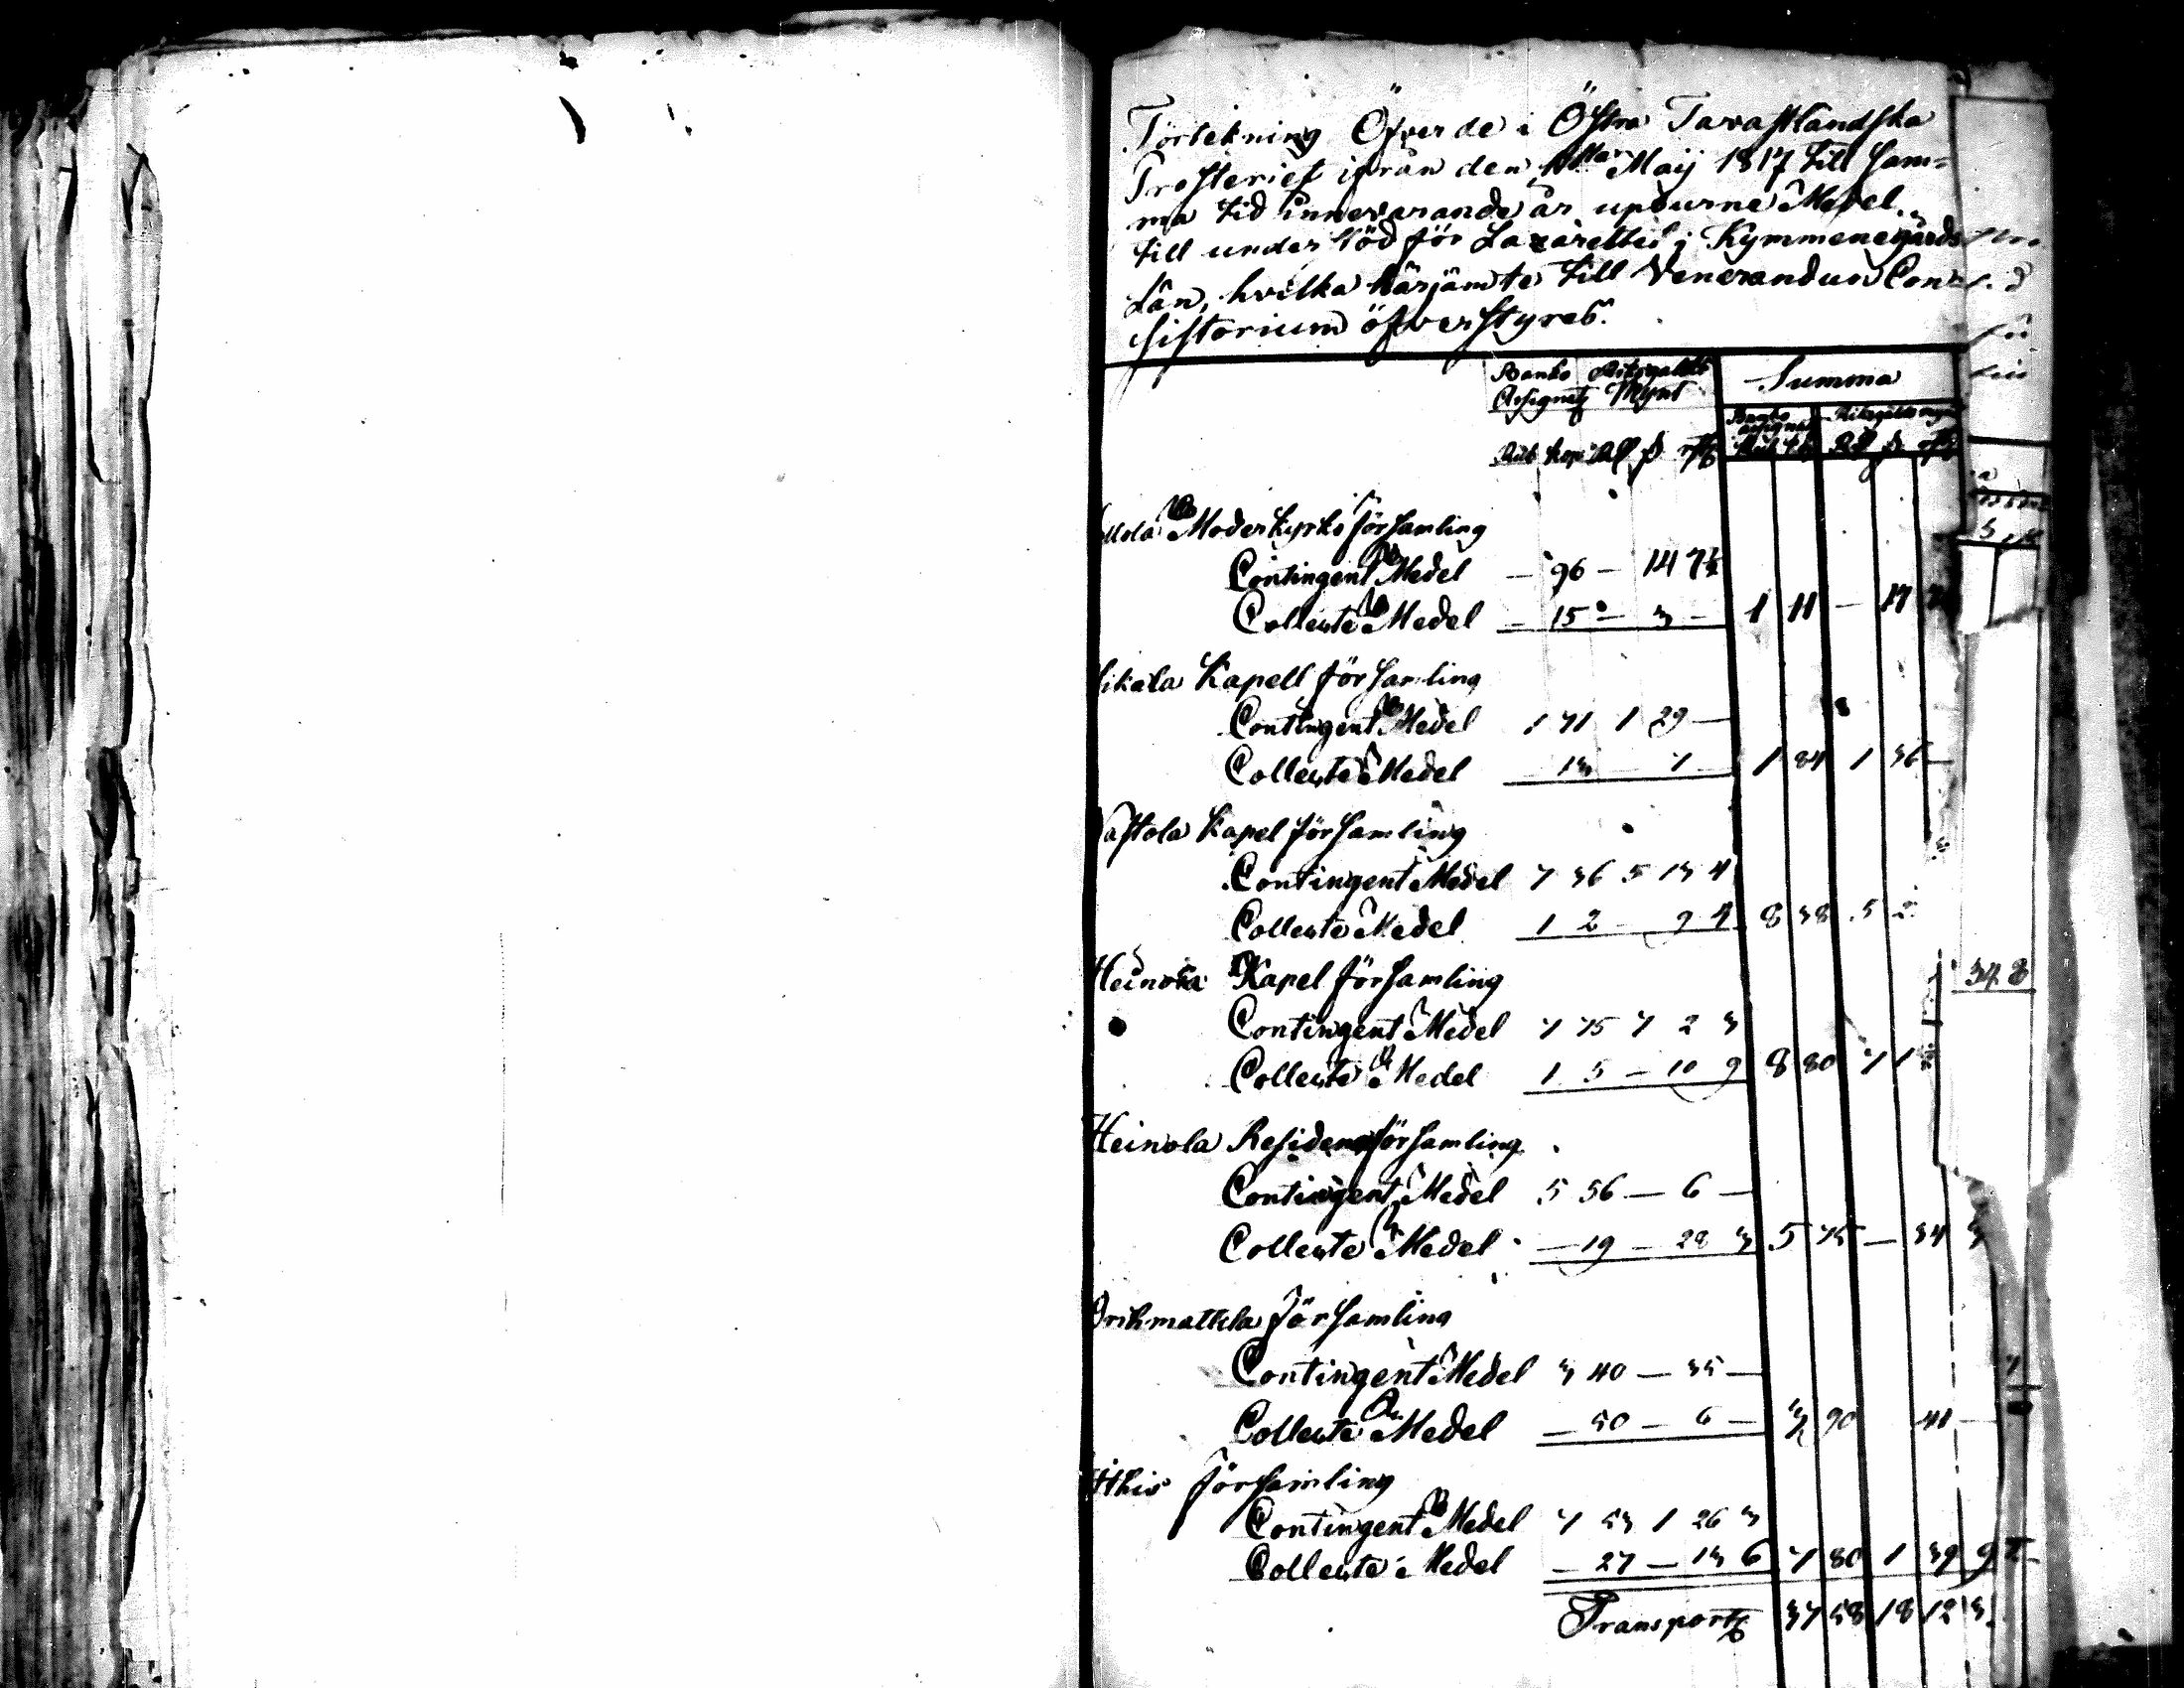 Förtekning Öfver de i Östra Tavastländska
Prosteriet ifrån den 1sta Maij 1817 till sam-
ma tid innevarande år upburne Medel
till understöd för Lazarettet i Kymmenegårds
Län, hvilka härjämte till Venerandum Con-
sistorium öfverstyres.
Banko Riksgälds Summa
Assignat. Mynt
Banko Riksgälds mynt
Rub Kop Rd s
Moderkyrko församling
Contingent Medel — 96 — 14 7½
Collecte Medel — 15 — 3 — 1 11 — 17
Kapell församling
Contingent Medel 1 71 1 29 —
Collecte Medel — 13 — 7 — 1 84 1 36 —
Kapel församling
Contingent Medel 7 36 5 13 4
Collecte Medel 1 2 — 9 4 8 38 5 2
Heinola Kapel församling
Contingent Medel 7 75 7 2 3
Collecte Medel 1 5 — 10 9 8 80 7 1
Heinola Residens församling
Contingent Medel 5 56 — 6 —
Collecte Medel — 19 — 28 3 5 75 — 34 3
Orihmattila församling
Contingent Medel 3 40 — 35 —
Collecte Medel — 50 — 6 — 3 90 41 —
församling
Contingent Medel 7 53 1 26 3
Collecte Medel — 27 — 13 6 7 80 1 39 9
Transport 37 58 18 12 3
348